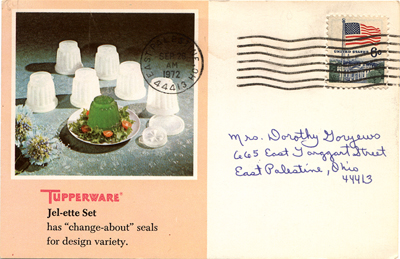 EAST
SEP
AM
1972
44413
UNITED STATES
8c
TUPPERWARE®
Jel-ette Set
has "change-about" seals
for design variety.
Mrs. Dorothy Goryews
665 East Taggart Street
East Palestine, Ohio
44413